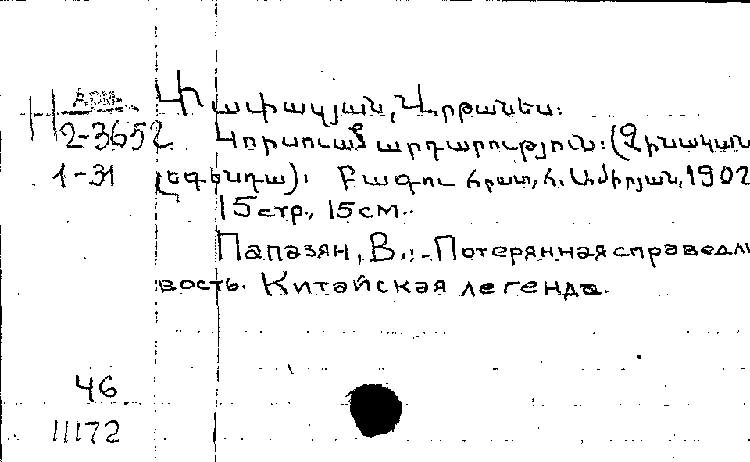 АРМ.
2-3652
1-31
Փափազյան, Վրթանես:
Կորսուած արդարություն: (Չինական
լեգենդա): Բագու հրատ, Հ. Ամիրյան, 1902
15 стр., 15 см.
Папазян, В., - Потерянная справедли
вость. Китайская легенда.
46
11172